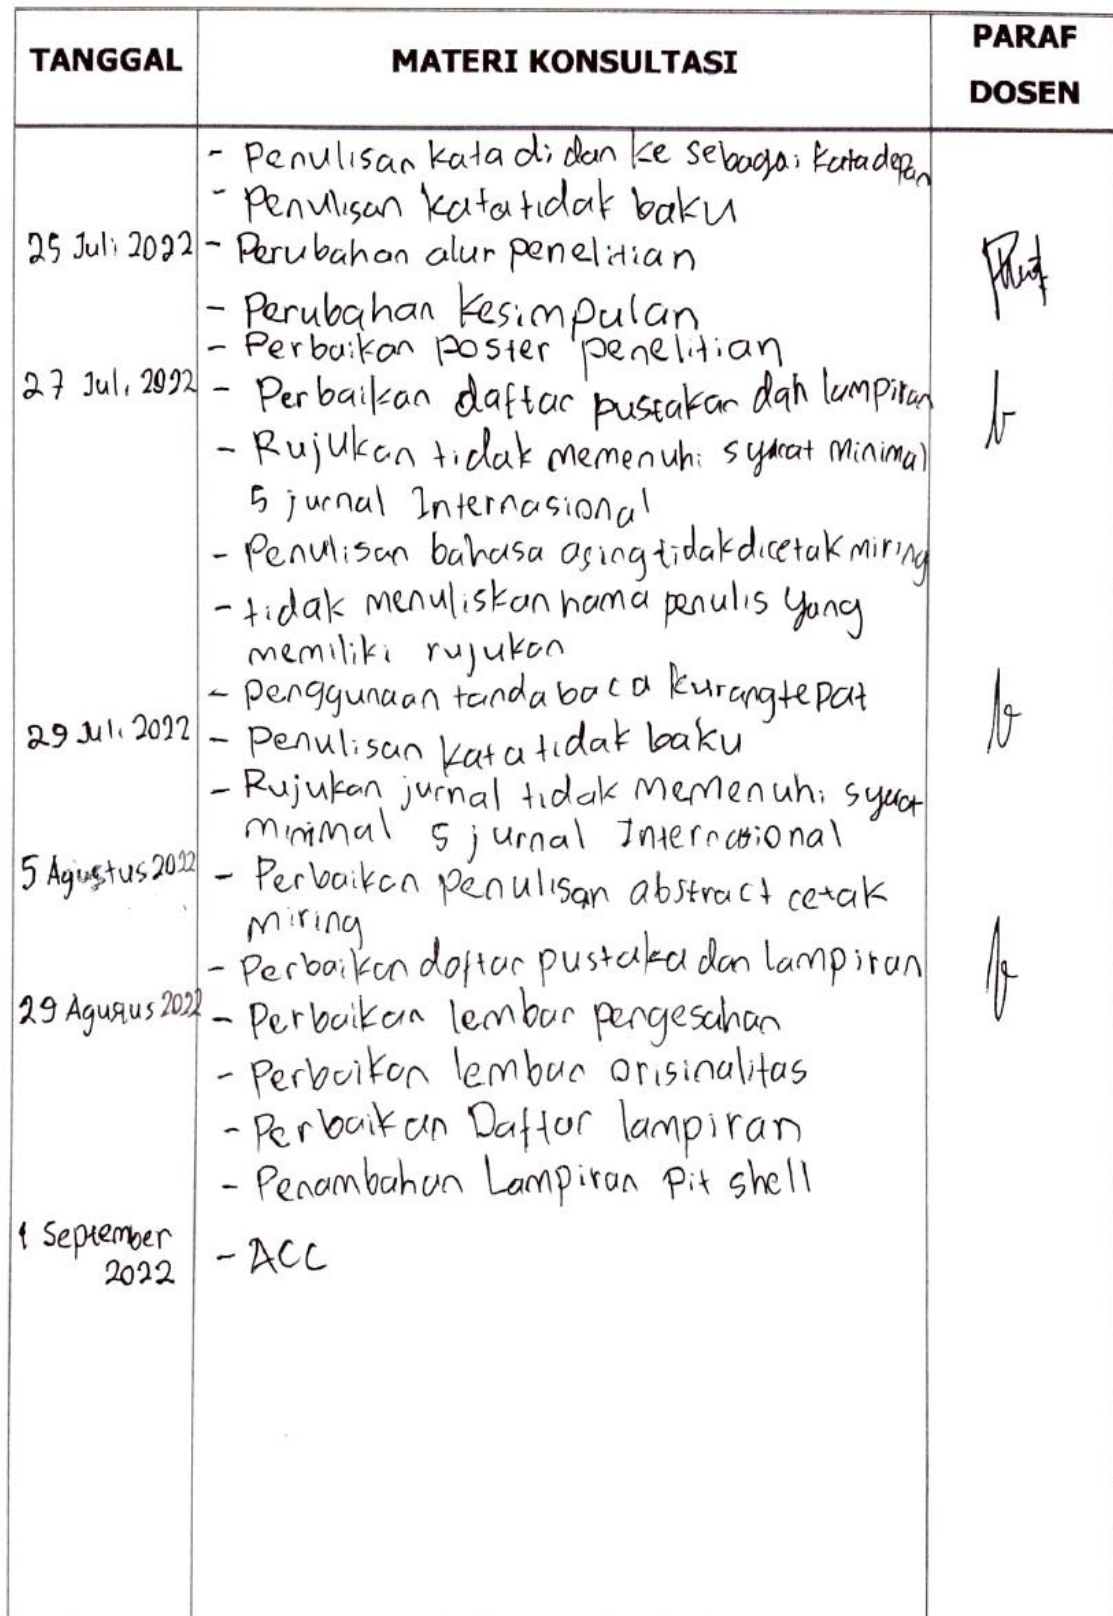 TANGGAL MATERI KONSULTASI PARAF
DOSEN
- Penulisan kata di dan ke sebagai kata depan
- Penulisan kata tidak baku
25 Juli 2022 - Perubahan alur penelitian
- Perubahan kesimpulan
- Perbaikan poster penelitian
27 Juli 2022 - Perbaikan daftar pustakan dan lampiran
- Rujukan tidak memenuhi syarat minimal
5 jurnal Internasional
- Penulisan bahasa asing tidak dicetak miring
- tidak menuliskan nama penulis yang
memiliki rujukan
- penggunaan tanda baca kurang tepat
29 Juli 2022 - Penulisan kata tidak baku
- Rujukan jurnal tidak memenuhi syarat
minimal 5 jurnal Internasional
5 Agustus 2022 - Perbaikan penulisan abstract cetak
miring
- Perbaikan daftar pustaka dan lampiran
29 Agusus 2022 - Perbaikan lembar pengesahan
- Perbaikan lembar orisinalitas
- Perbaikan Daftar lampiran
- Penambahan Lampiran Pit shell
1 September
2022 - ACC